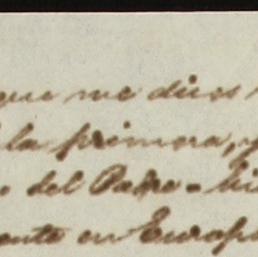 que me dices
la primera, y
del Padre - Hi
ente en Europ